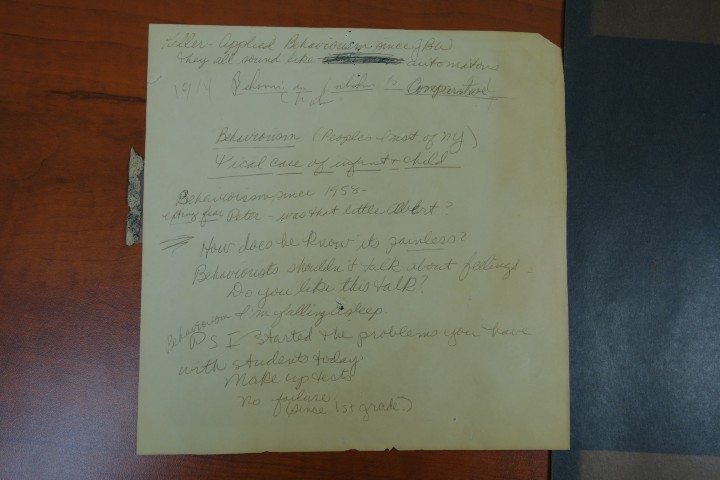 Keller - Applied Behaviorism since JABA
they all sound like automatons
1914 Behavior Comparative
Behaviorism (Peoples Inst. of NY)
& ical care of infant & child
Behaviorism since 1958 -
Peter - was that little Albert?
How does he know its painless?
Behaviorists shouldn't talk about feelings -
Do you like this talk?
Behaviorism & I'm falling asleep
PSI started the problems you have
with students today.
Make up tests
no failure.
(since 1st grade.)